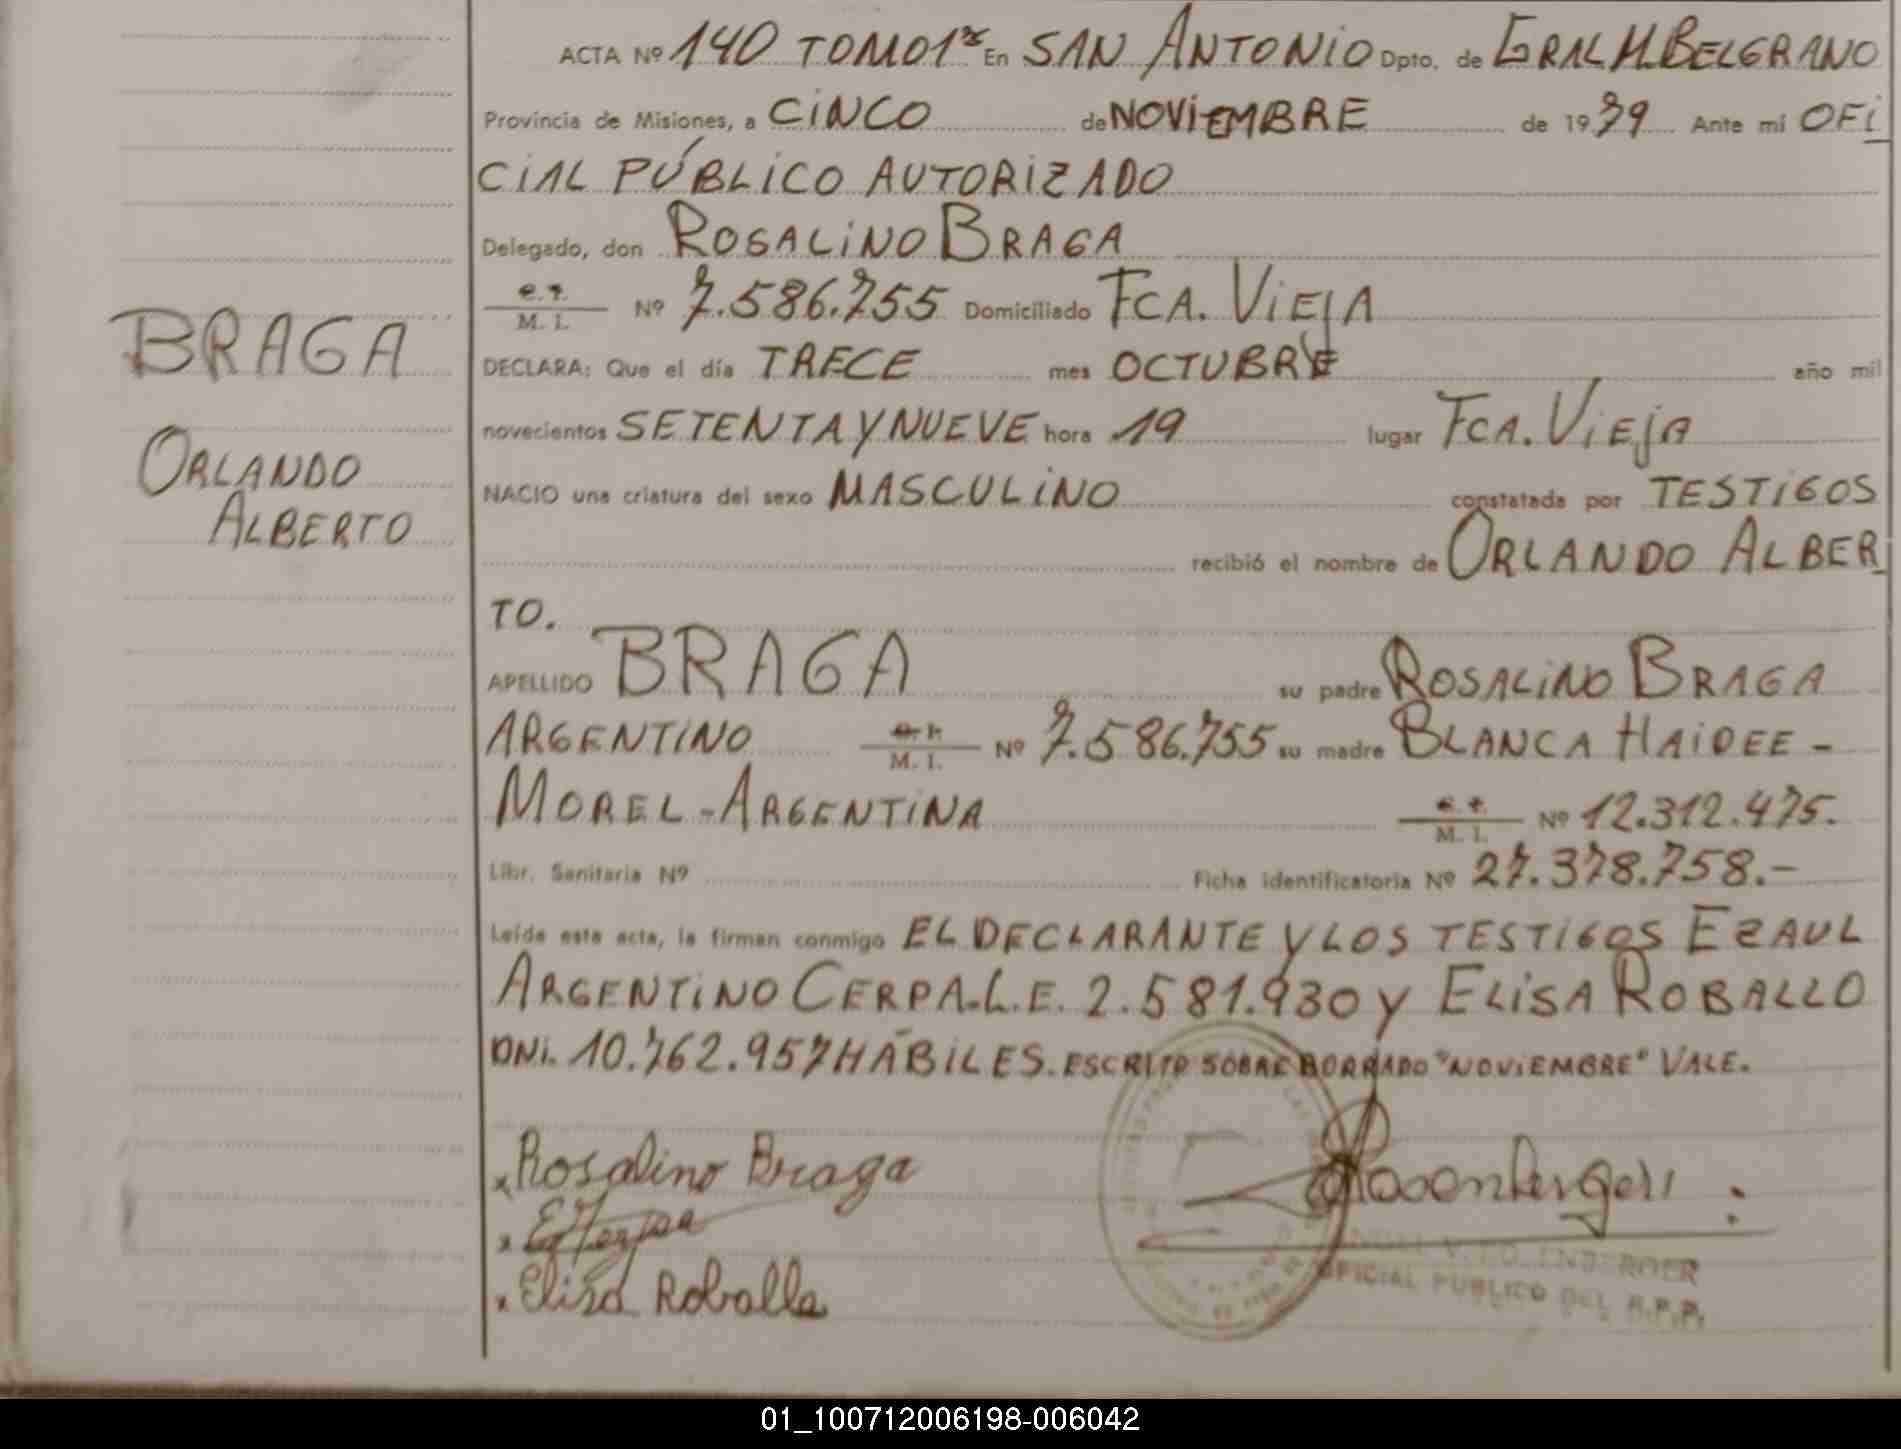 ACTA Nº 140 TOMO 1º En SAN ANTONIO Dpto. de GRAL M. BELGRANO
Provincia de Misiones, a CINCO de NOVIEMBRE de 1979 Ante mí OFI
CIAL PÚBLICO AUTORIZADO
Delegado, don ROSALINO BRAGA
M. I. Nº 7.586.755 Domiciliado FCA. VIEJA
BRAGA
DECLARA: Que el día TRECE mes OCTUBRE año mil
novecientos SETENTA Y NUEVE hora 19 lugar FCA. VIEJA
ORLANDO
NACIO una criatura del sexo MASCULINO constatada por TESTIGOS
ALBERTO
recibió el nombre de ORLANDO ALBER
TO.
APELLIDO BRAGA su padre ROSALINO BRAGA
ARGENTINO M. I. Nº 7.586.755 su madre BLANCA HAIDEE -
MOREL - ARGENTINA M. I. Nº 12.312.475.
Libr. Sanitaria Nº Ficha identificatoria Nº 27.378.758.-
Leída esta acta, la firman conmigo EL DECLARANTE Y LOS TESTIGOS EZAUL
ARGENTINO CERPA. L.E. 2.581.930 Y ELISA ROBALLO
DNI. 10.762.957 HÁBILES. ESCRITO SOBRE BORRADO "NOVIEMBRE" VALE.
Rosalino Braga
Elisa Roballo
OFICIAL PUBLICO DEL R.P.P.
01_100712006198-006042